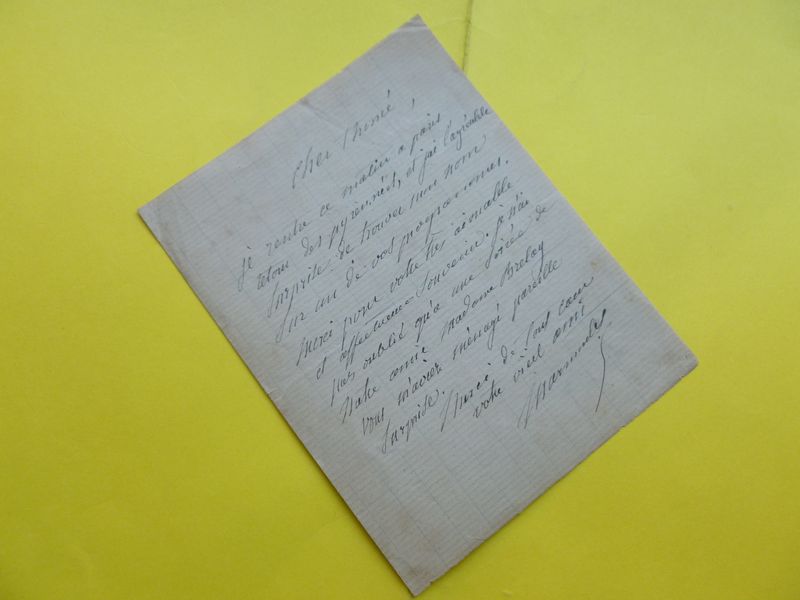 Cher Aimé,
je rentre ce matin a paris
retour des pyrennées, et j'ai l'agréable
surprise de trouver mon nom
sur un de vos programmes.
Merci pour votre très aimable
et affectueux souvenir. je n'ai
pas oublié qu'a une soirée de
Notre amie madame Brelay
vous m'aviez ménagé pareille
surprise. Merci de tout cœur
votre vieil ami